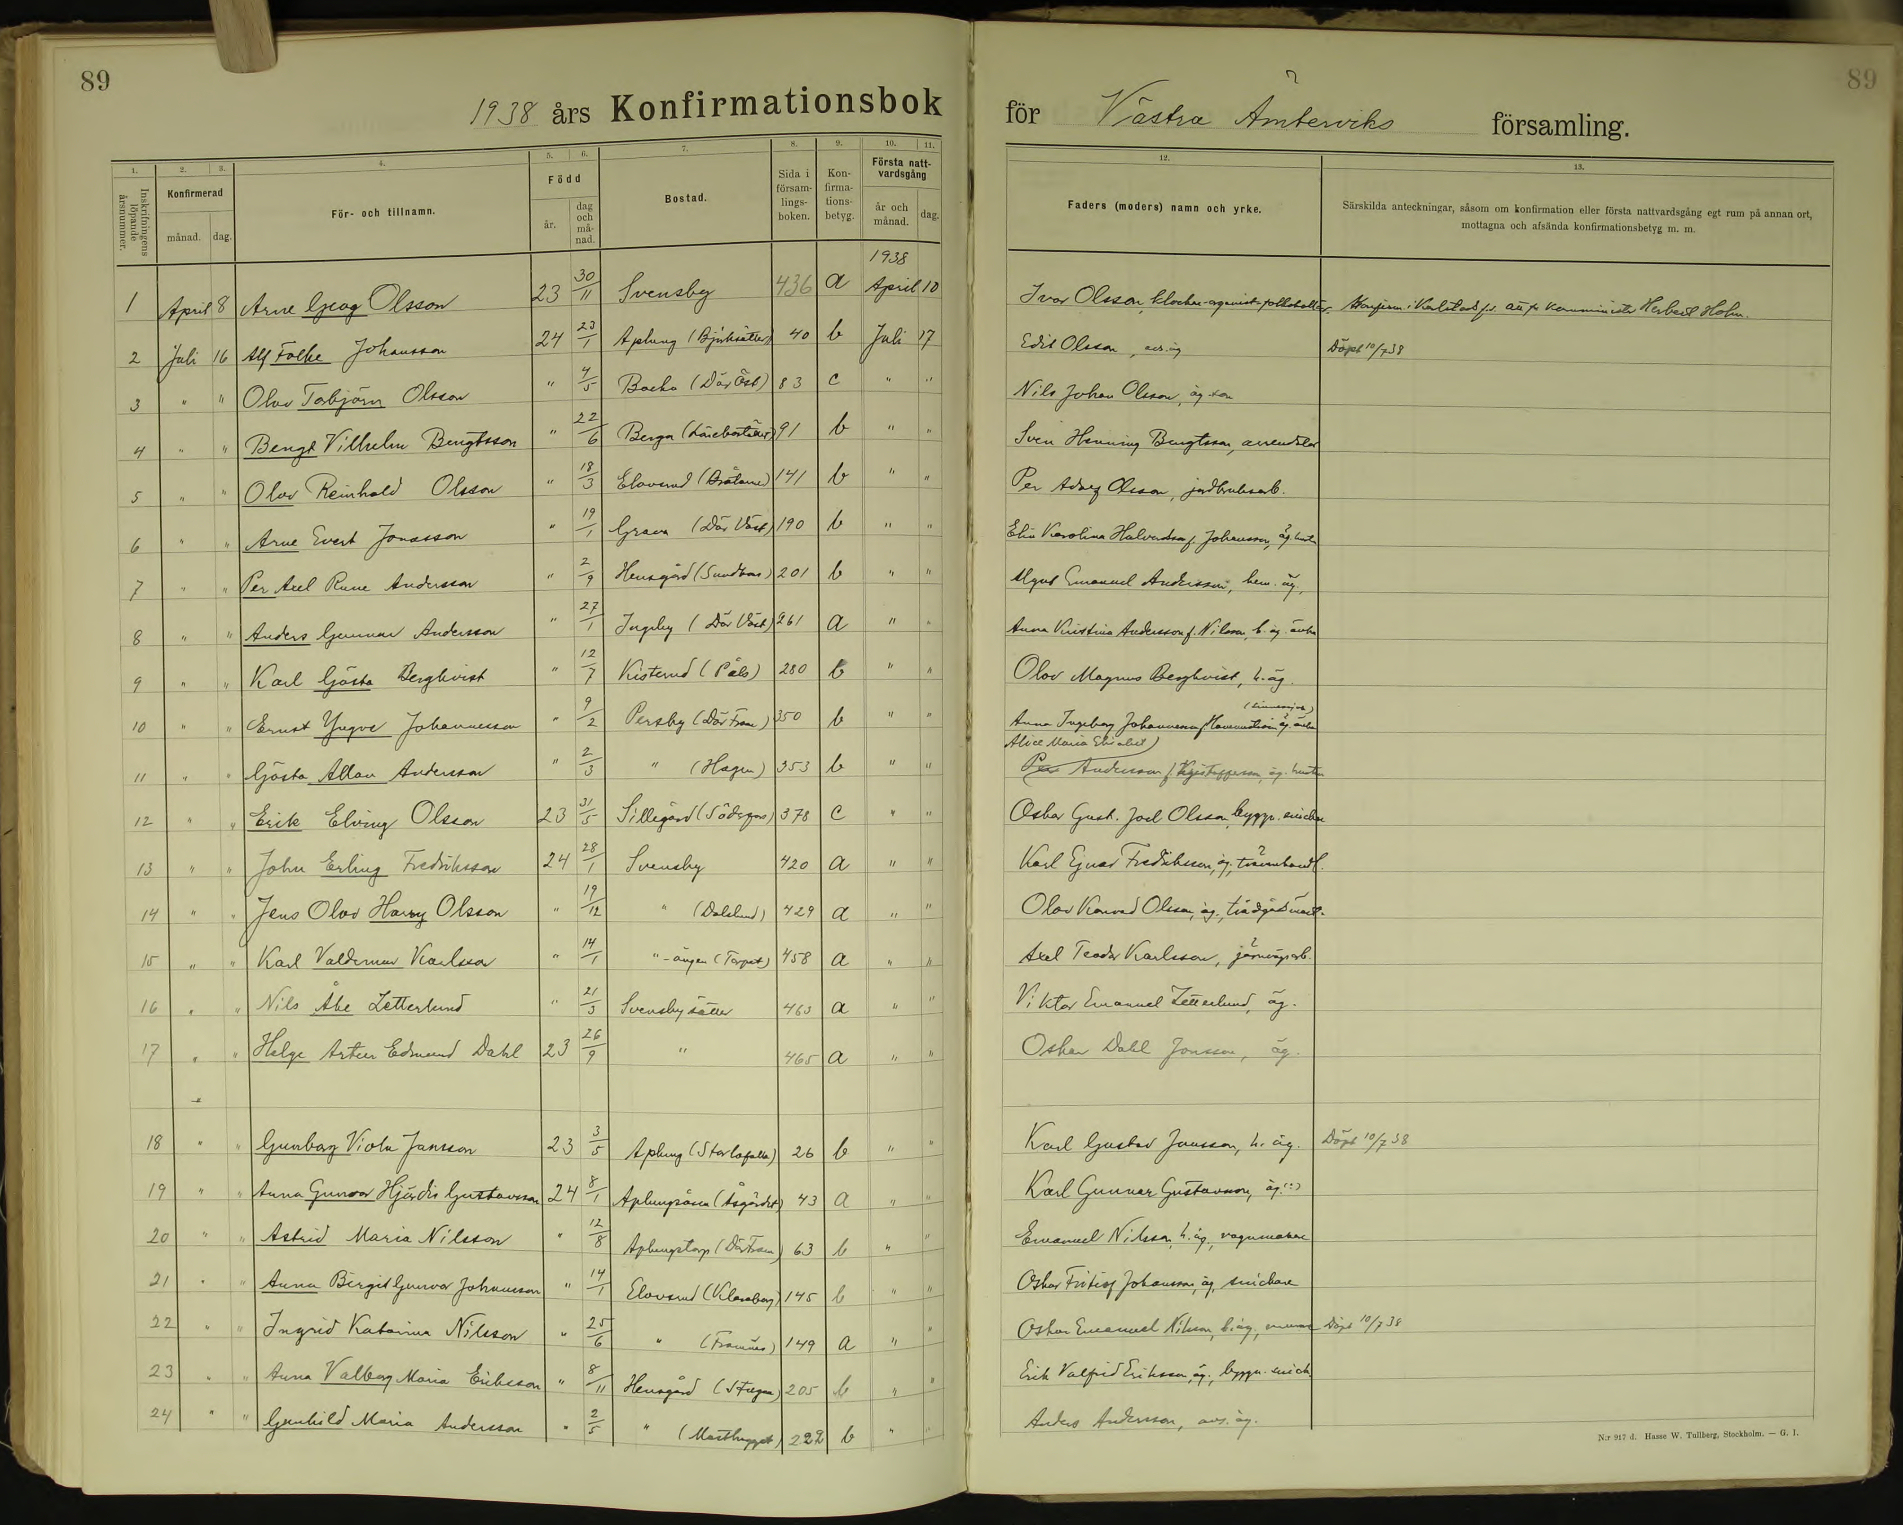 89
1938 års Konfirmationsbok
1. 2. 3. 4. 5. 6. 7. 8. 9. 10. 11.
Inskrifningens löpande årsnummer.
Konfirmerad
månad. dag.
För- och tillnamn.
Född
år. dag och må-nad.
Bostad.
Sida i försam-lings-boken.
Kon-firma-tions-betyg.
Första natt-vardsgång
år och månad. dag.
1938
1 April 8 Arne Georg Olsson 23 30/11 Svensby 436 a April 10
2 Juli 16 Alf Folke Johansson 24 23/1 Aplung (Björksätter) 40 b Juli 17
3 " " Olov Torbjörn Olsson " 4/5 Backa (Där Öst) 83 c " "
4 " " Bengt Vilhelm Bengtsson " 22/6 Berga 91 b " "
5 " " Olov Reinhold Olsson " 18/3 Elovsrud (Bråtarne) 141 b " "
6 " " Arne Evert Jonasson " 19/1 Grava (Där Väst) 190 b " "
7 " " Per Axel Rune Andersson " 2/9 Hensgård (Sundhem) 201 b " "
8 " " Anders Gunnar Andersson " 27/1 Ingeby (Där Väst) 261 a " "
9 " " Karl Gösta Berghvist " 12/7 Kisterud (Påls) 280 b " "
10 " " Ernst Yngve Johannesson " 9/2 Persby (Där Fram) 350 b " "
11 " " Gösta Allan Andersson " 2/3 " (Hagen) 353 b " "
12 " " Erik Elving Olsson 23 31/5 Sillegård 378 c " "
13 " " John Erling Fredriksson 24 28/1 Svensby 420 a " "
14 " " Jens Olov Harry Olsson " 19/12 " (Dalslund) 429 a " "
15 " " Karl Valdemar Karlsson " 14/1 "-ängen (Torpet) 458 a " "
16 " " Nils Åke Zetterlund " 21/3 Svensbysäter 463 a " "
17 " " Helge Artur Edmund Dahl 23 26/9 " 465 a " "
18 " " Gunborg Viola Jansson 23 3/5 Aplung (Storlofalla) 26 b " "
19 " " Anna Gunvor Hjördis Gustavsson 24 8/1 Aplungsåsen (Åsgärdet) 43 a " "
20 " " Astrid Maria Nilsson " 12/8 Aplungstorp (Där Fram) 63 b " "
21 " " Anna Birgit Gunvor Johansson " 14/1 Elovsrud (Klaraborg) 145 b " "
22 " " Ingrid Katarina Nilsson " 25/6 " (Framnäs) 149 a " "
23 " " Anna Valborg Maria Eriksson " 8/11 Hensgård (Stugan) 205 b " "
24 " " Gunhild Maria Andersson " 2/5 " (Mosthugget) 222 b " "
89
för Västra Ämterviks församling.
12. 13.
Faders (moders) namn och yrke.
Särskilda anteckningar, såsom om konfirmation eller första nattvardsgång egt rum på annan ort, mottagna och afsända konfirmationsbetyg m. m.
Ivar Olsson, klockar-organist-folkskollär. Konfirm. i Karlstads för. komminister Herbert Holm.
Edit Olsson, Döpt 10/7 38
Nils Johan Olsson, äg. son
Sven Henning Bengtsson, arrendator
Per Adolf Olsson, jordbruksarb.
Elin Karolina Halvardsson f. Johansson, äg. hustru
Emanuel Andersson, hem. äg.
Anna Kristina Andersson f. Nilsson, h. äg. änka
Olov Magnus Berghvist, h. äg.
Anna Ingeborg Johannesson äg. änka
Alice Maria Elisabet)
Per Andersson f. Kristoffersson, äg. hustru
Oskar Gust. Joel Olsson, byggn. snickare
Karl Ejnar Fredriksson, äg., trävaruhandl.
Olov Konrad Olsson, äg., trädgårdsmäst.
Axel Teodor Karlsson, järnvägsarb.
Viktor Emanuel Zetterlund, äg.
Oskar Dahl Jonsson, äg.
Karl Gustav Jansson, h. äg. Döpt 10/7 38
Karl Gunnar Gustavsson, äg.
Emanuel Nilsson, h. äg., vagnmakare
Oskar Fritiof Johansson, äg., snickare
Oskar Emanuel Nilsson, h. äg., murare Döpt 10/7 38
Erik Valfrid Eriksson, äg., byggn. snick.
Anders Andersson, avs. äg.
N:r 917 d. Hasse W. Tullberg, Stockholm. — G. I.